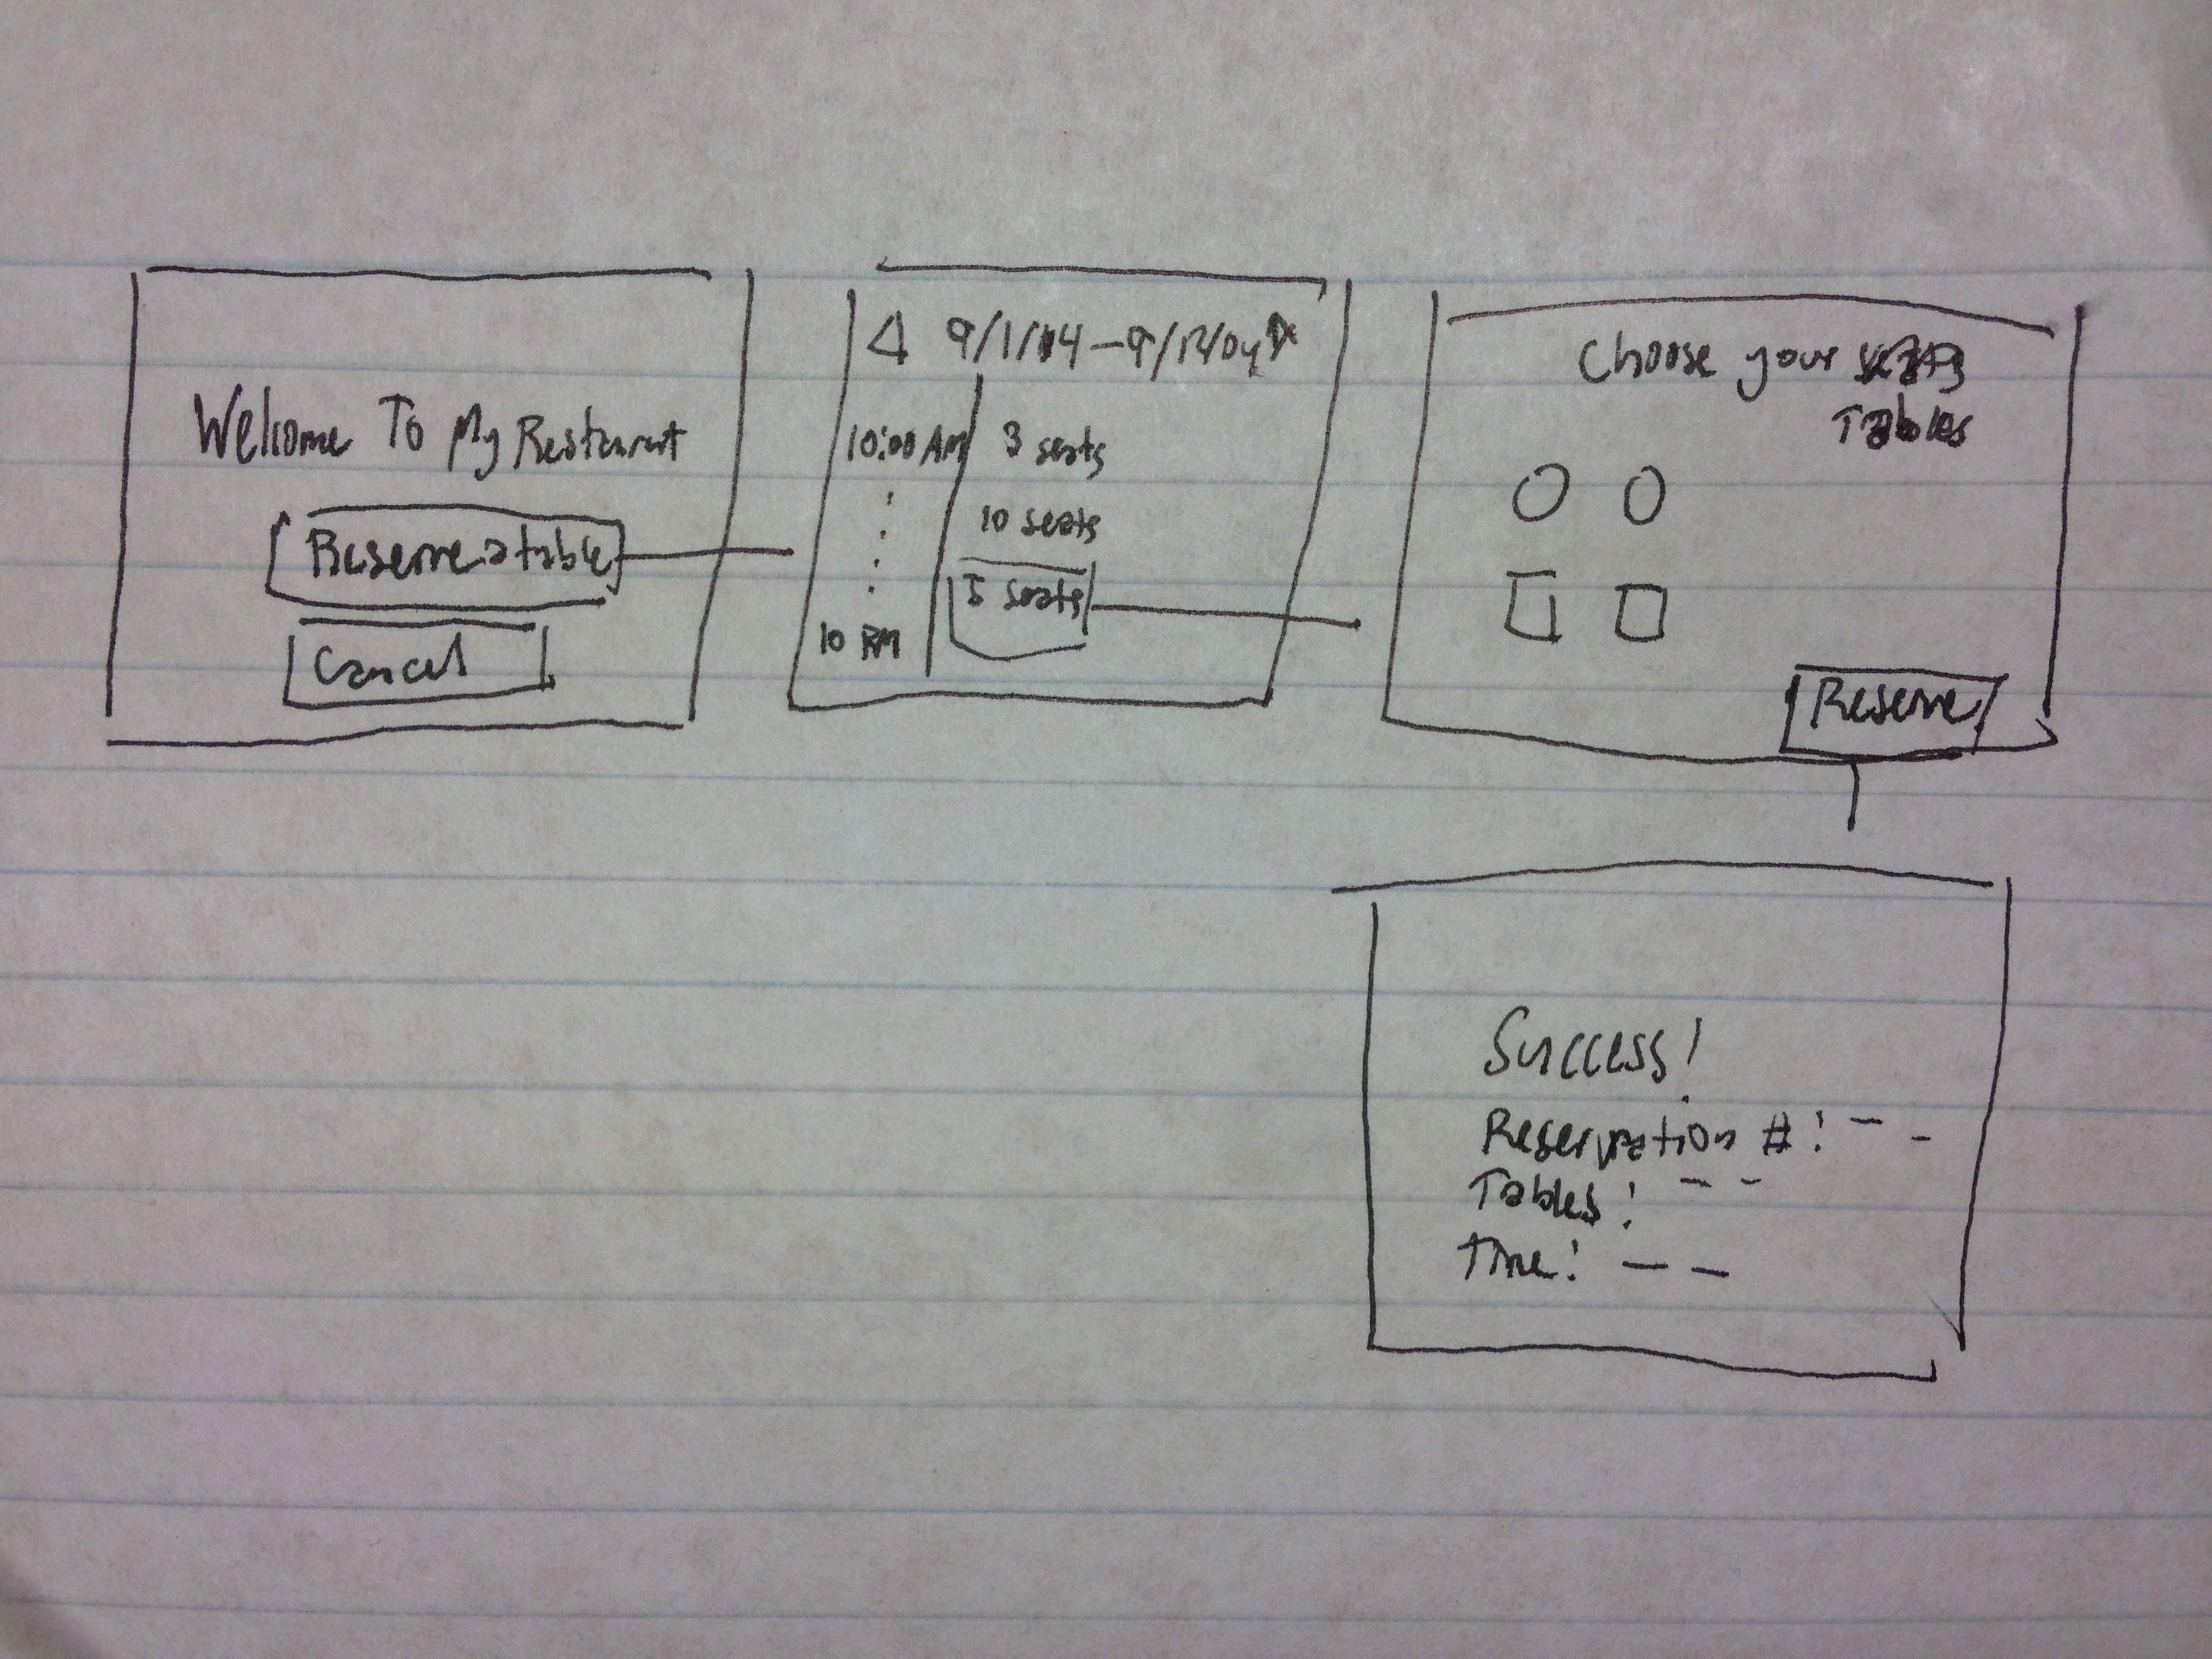 Welcome To My Restaurant
Reserve a table
Cancel
9/1/04 – 9/12/04
10:00 AM 3 seats
10 seats
5 seats
10 PM
Choose your
Tables
Reserve
Success!
Reservation #: - -
Tables: - -
Time: - -